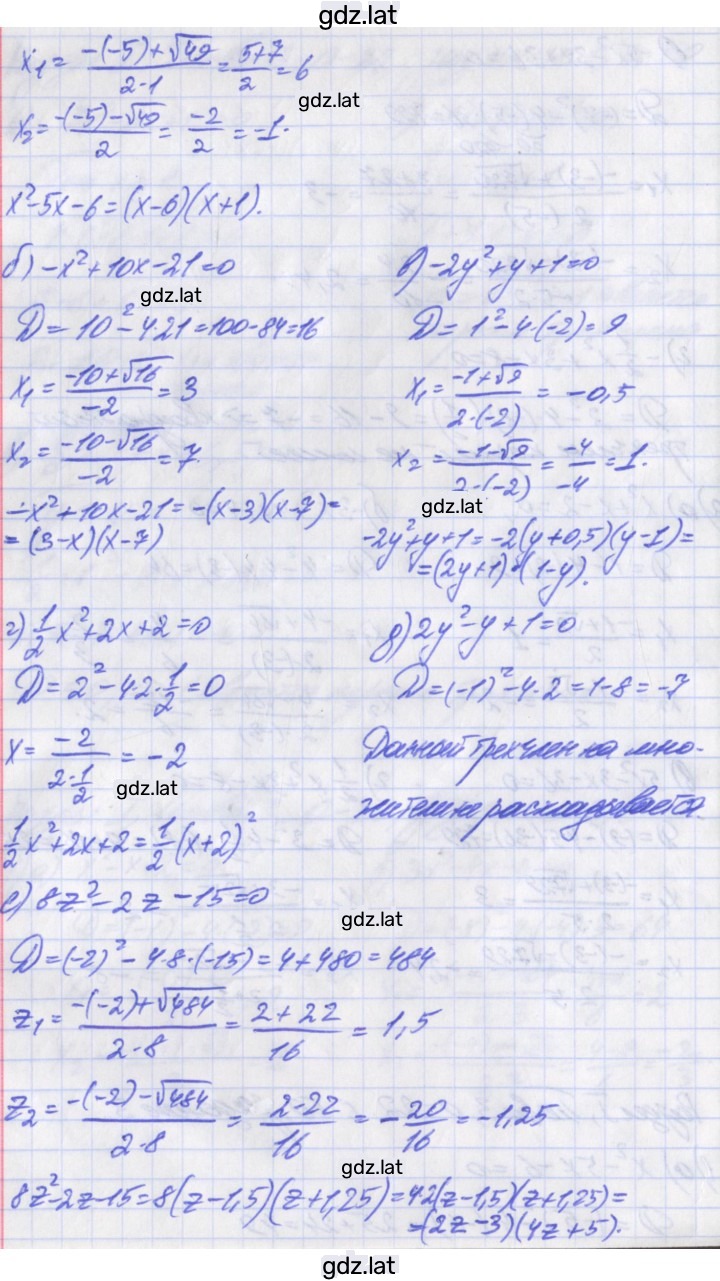 gdz.lat
x₁ = (-(-5)+√49)/(2·1) = (5+7)/2 = 6
gdz.lat
x₂ = (-(-5)-√49)/2 = -2/2 = -1.
x²-5x-6=(x-6)(x+1).
б) -x²+10x-21=0
gdz.lat
D = 10²-4·21=100-84=16
x₁ = (-10+√16)/(-2) = 3
x₂ = (-10-√16)/(-2) = 7
-x²+10x-21=-(x-3)(x-7)=
=(3-x)(x-7)
в) -2y²+y+1=0
D = 1²-4·(-2)=9
x₁ = (-1+√9)/(2·(-2)) = -0,5
x₂ = (-1-√9)/(2·(-2)) = -4/-4 = 1.
gdz.lat
-2y²+y+1=-2(y+0,5)(y-1)=
=(2y+1)·(1-y).
г) 1/2x²+2x+2=0
D = 2²-4·2·1/2=0
x = -2/(2·1/2) = -2
gdz.lat
1/2x²+2x+2=1/2(x+2)²
д) 2y²-y+1=0
D=(-1)²-4·2=1-8=-7
Данный трехчлен на мно-
жители не раскладывается.
е) 8z²-2z-15=0
gdz.lat
D=(-2)²-4·8·(-15)=4+480=484
z₁ = (-(-2)+√484)/(2·8) = (2+22)/16 = 1,5
z₂ = (-(-2)-√484)/(2·8) = (2-22)/16 = -20/16 = -1,25
gdz.lat
8z²-2z-15=8(z-1,5)(z+1,25)=4·2(z-1,5)(z+1,25)=
=(2z-3)(4z+5).
gdz.lat